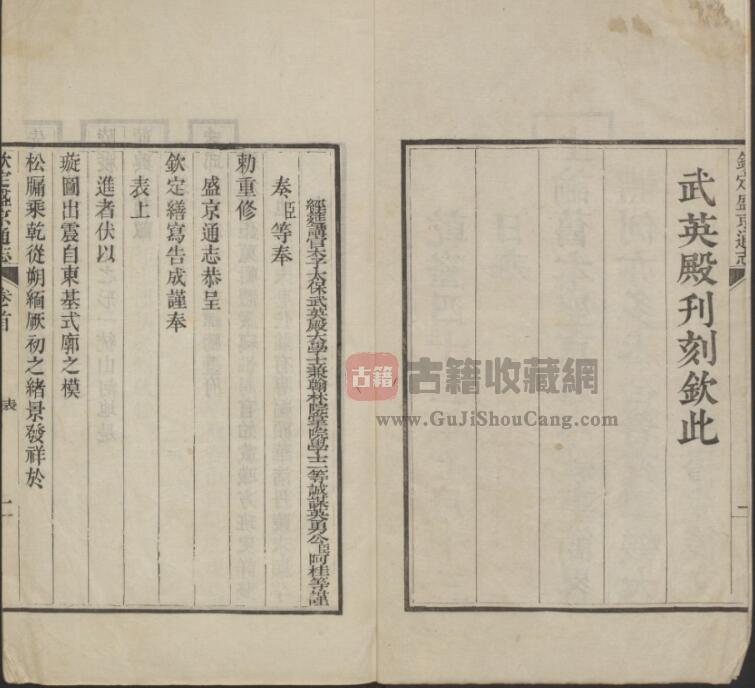 欽定盛京通志
武英殿刊刻欽此
經筵講官太子太保武英殿大學士兼翰林院掌院學士一等誠謀英勇公臣阿桂等謹
奏臣等奉
勅重修
盛京通志恭呈
欽定繕寫告成謹奉
表上
進者伏以
璇圖出震自東基式廓之模
松牖乘乾從朔緬厥初之緒景發祥於
欽定盛京通志 卷首 表 一
古籍
古籍收藏網
www.GuJiShouCang.com